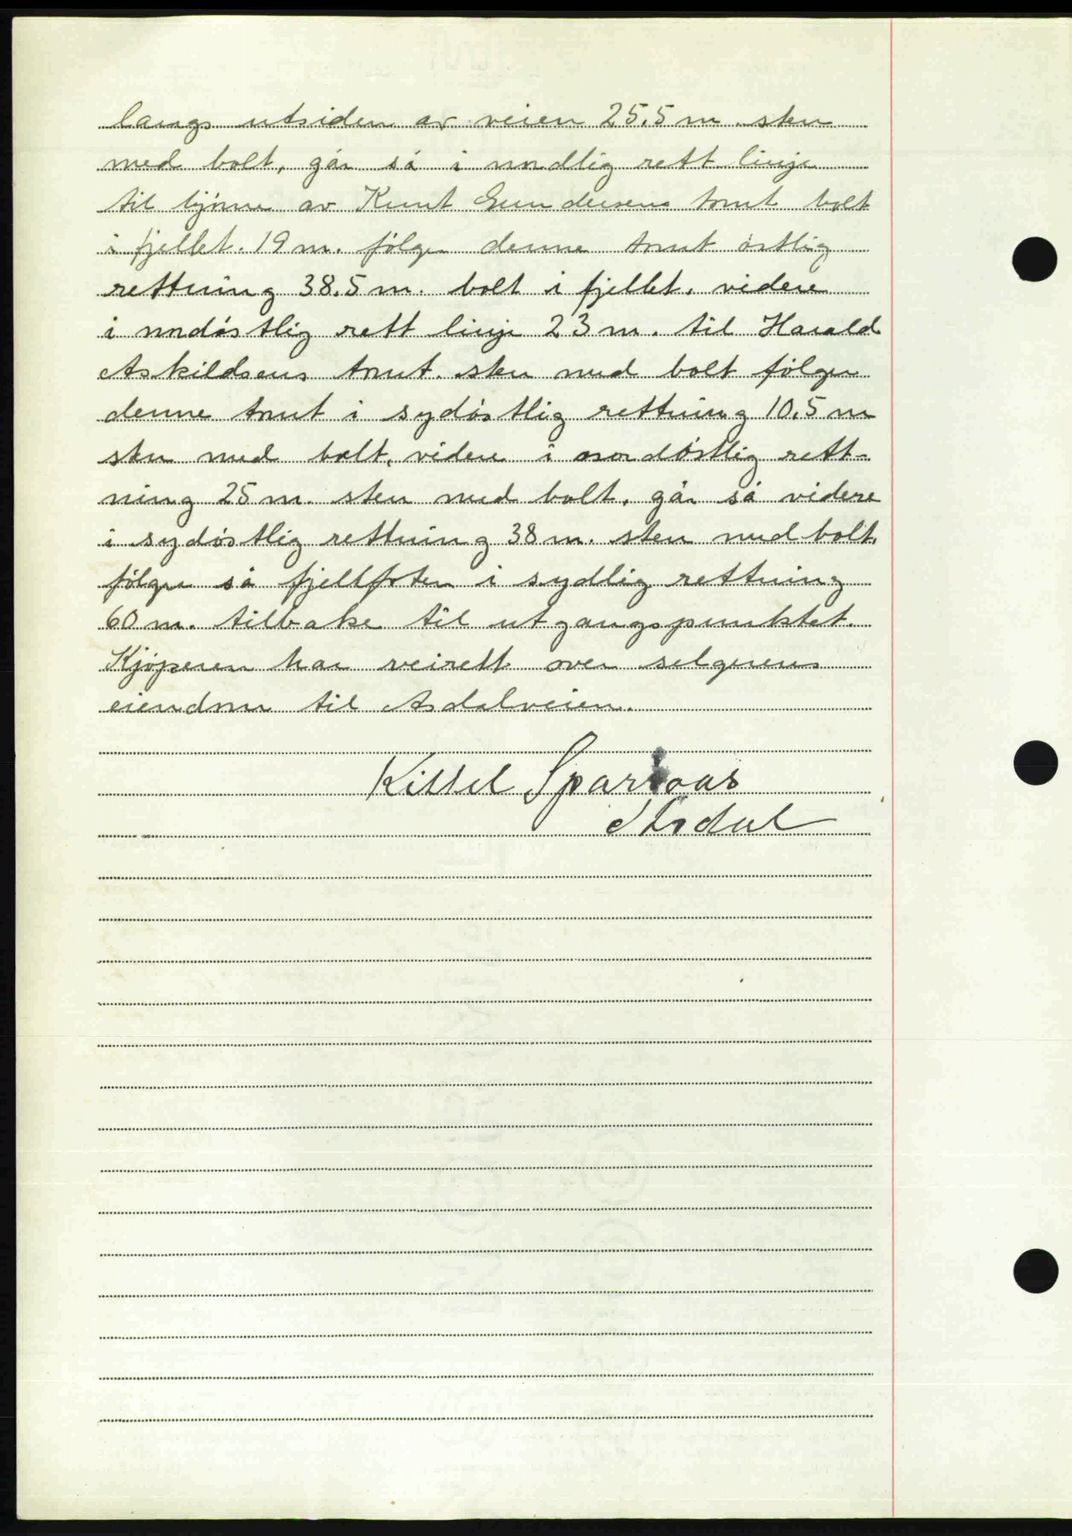 langs utsiden av veien 25,5 m. sten
med bolt, går så i nordlig rett linje
til hjørne av Knut Gundersens tomt bolt
i fjellet. 19 m. følger denne tomt østlig
rettning 38,5 m. bolt i fjellet, videre
i nordøstlig rett linje 23 m. til Harald
Askildsens tomt. sten med bolt følger
denne tomt i sydøstlig rettning 10,5 m
sten med bolt, videre i nordøstlig rett-
ning 25 m. sten med bolt, går så videre
i sydøstlig rettning 38 m. sten med bolt,
følger så fjellfoten i sydlig rettning
60 m. tilbake til utgangspunktet.
Kjøperen har veirett over selgerens
eiendom til Asdalveien.
Kittel Sparsaas